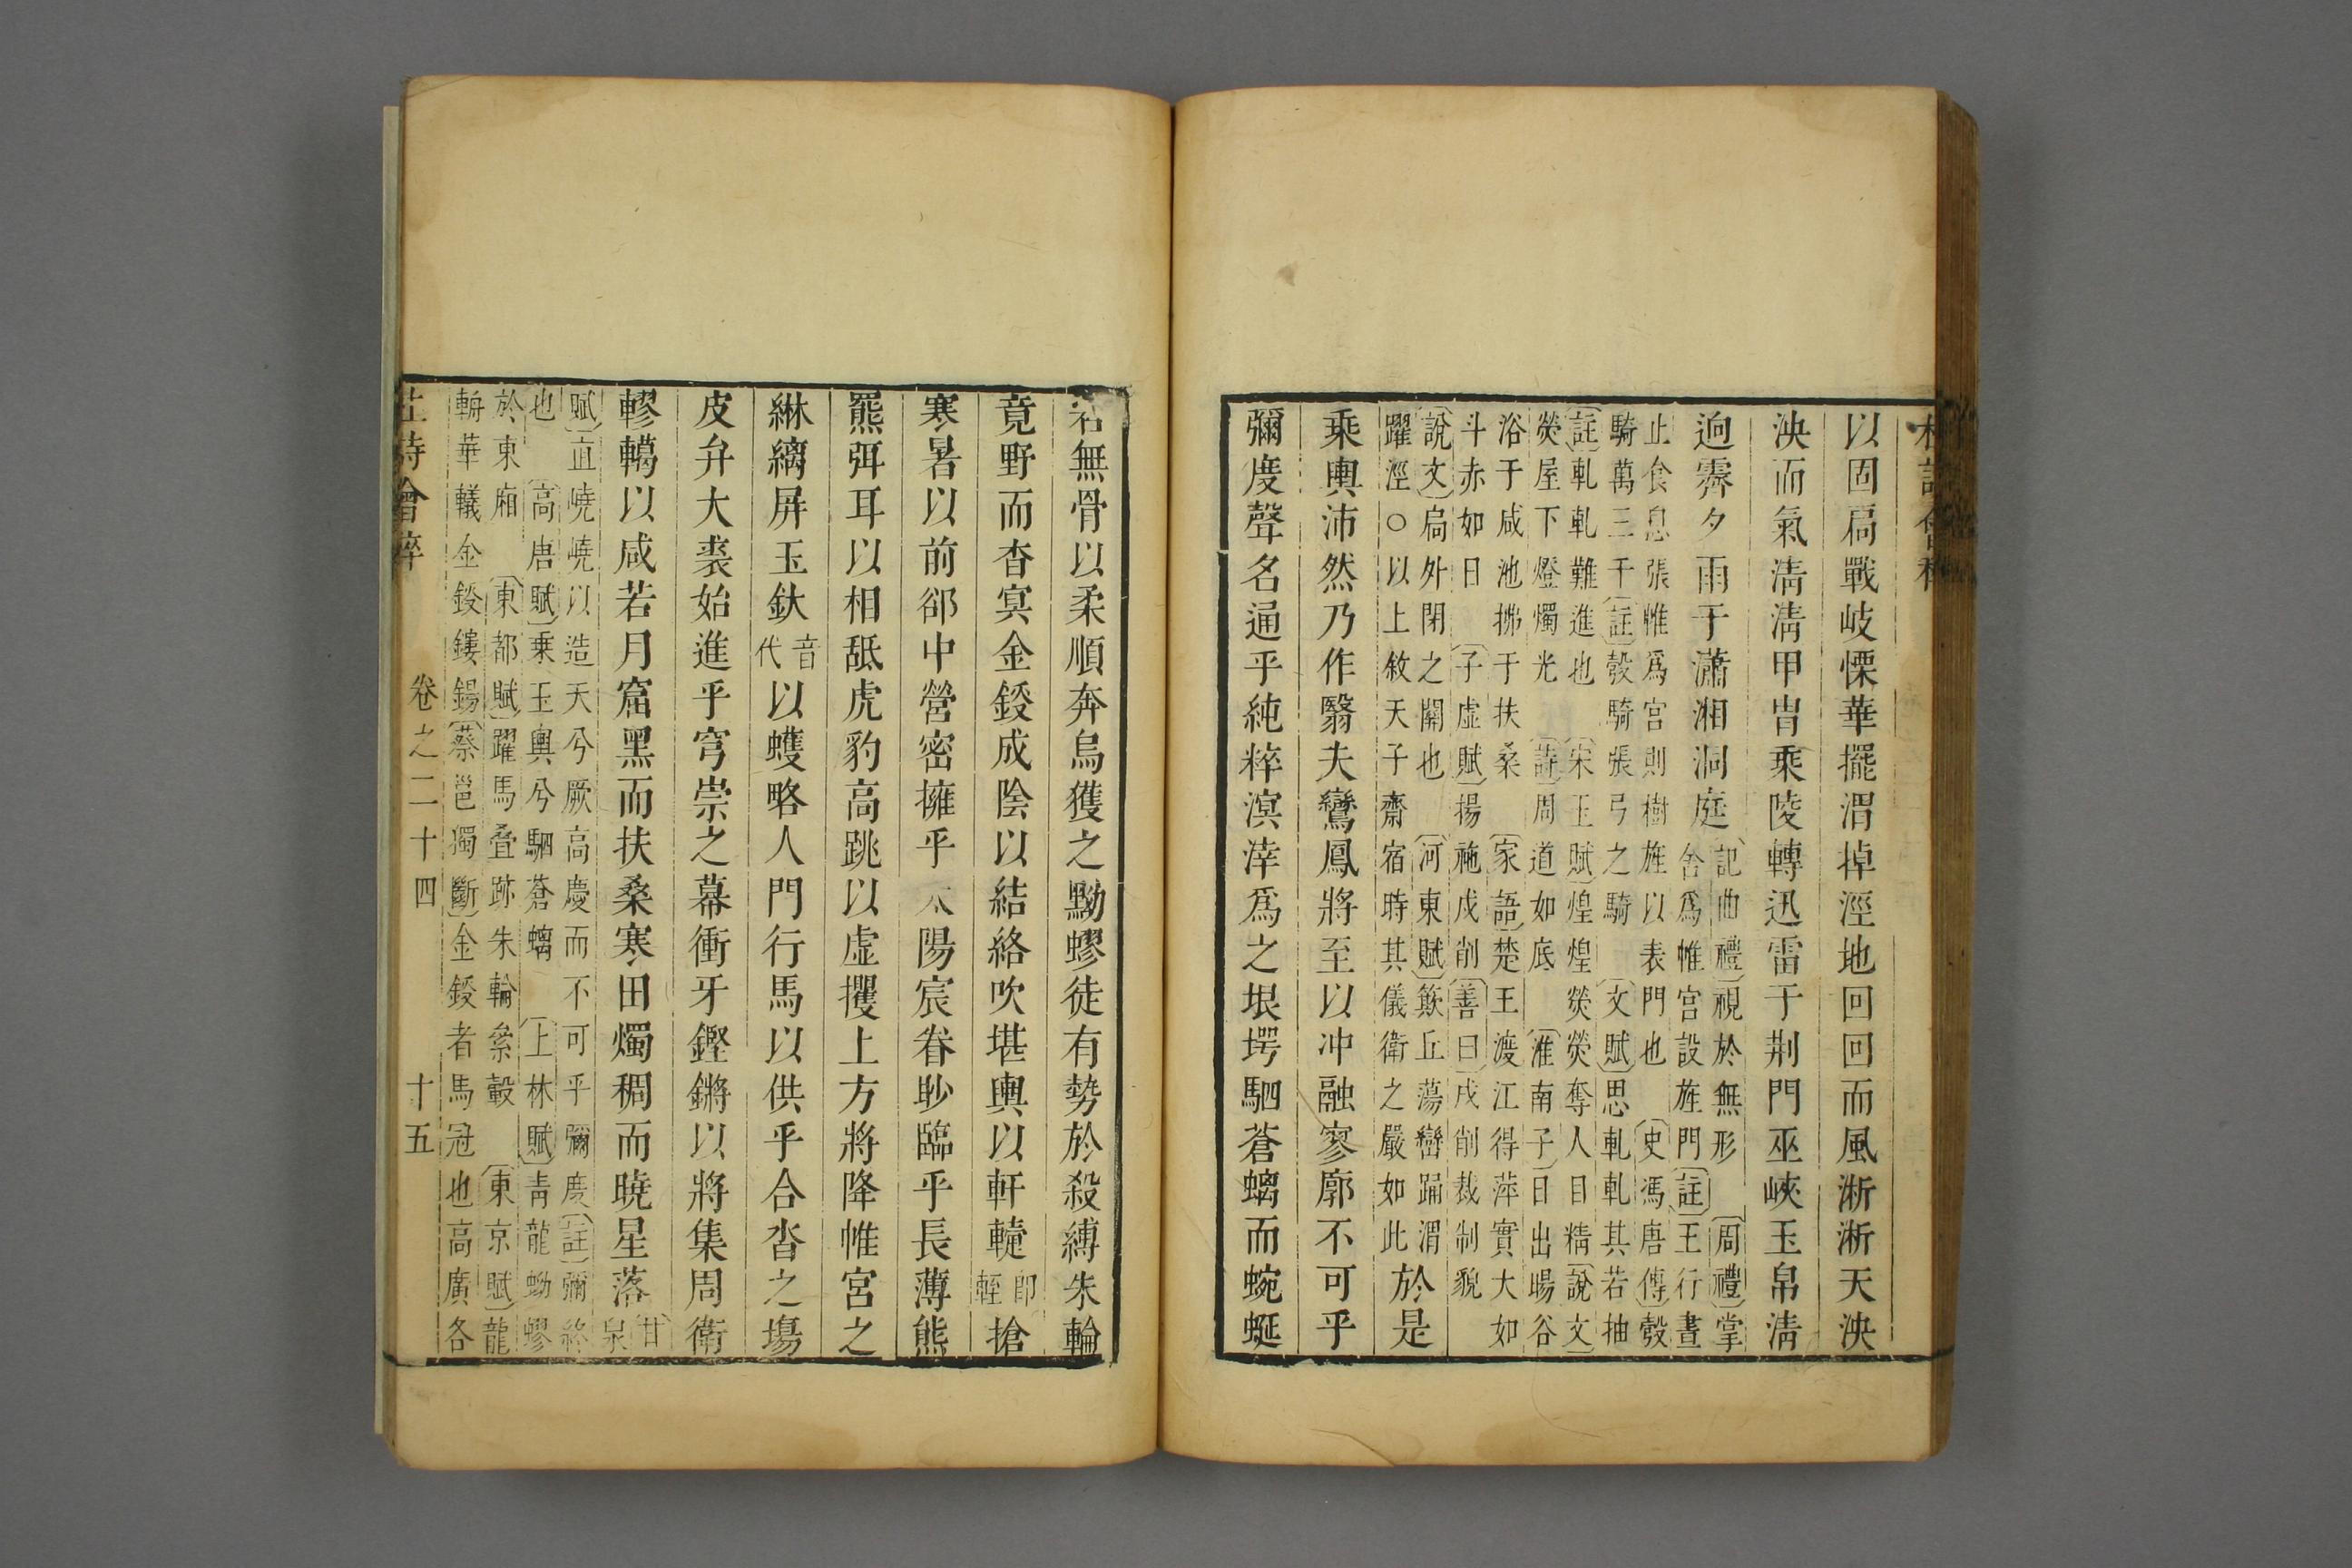 以固扃戰岐慄華擺渭掉涇地回回而風淅淅天泱
泱而氣淸淸甲胄乘陵轉迅雷于荆門巫峽玉帛淸
逈霽夕雨于瀟湘洞庭
記曲禮視於無形 周禮掌
舍爲帷宮設旌門註王行晝
止食息張帷爲宮則樹旌以表門也 史馮唐傳彀
騎萬三千註彀騎張弓之騎 文賦思軋軋其若抽
註軋軋難進也 宋玉賦煌煌熒熒奪人目精說文
熒屋下燈燭光 詩周道如底 淮南子日出暘谷
浴于咸池拂于扶桑 家語楚王渡江得萍實大如
斗赤如日 子虛賦揚袘戌削善曰戌削裁制貌
說文扃外閉之關也 河東賦簸丘蕩巒踊渭
躍涇○以上敘天子齋宿時其儀衛之嚴如此
於是
乘輿沛然乃作翳夫鸞鳳將至以冲融寥廓不可乎
彌度聲名通乎純粹溟涬爲之垠堮駟蒼螭而蜿蜒
若無骨以柔順奔烏獲之黝蟉徒有勢於殺縛朱輪
竟野而杳冥金鋄成陰以結絡吹堪輿以軒轾
卽
輊
搶
寒暑以前郤中營密擁乎太陽宸眷眇臨乎長薄熊
羆弭耳以相舐虎豹高跳以虛攫上方將降帷宮之
綝縭屏玉軑
音
代
以蠖略人門行馬以供乎合沓之場
皮弁大裘始進乎穹崇之幕衝牙鏗鏘以將集周衛
轇轕以咸若月窟黑而扶桑寒田燭稠而曉星落
甘
泉
賦直嶢嶢以造天兮厥高慶而不可乎彌度註彌終
也 高唐賦乘玉輿兮駟蒼螭 上林賦靑龍蚴蟉
於東廂 東都賦躍馬疊跡朱輪絫轂 東京賦龍
輈華轙金鋄鏤錫蔡邕獨斷金鋄者馬冠也高廣各
杜詩會稡
卷之二十四
十五